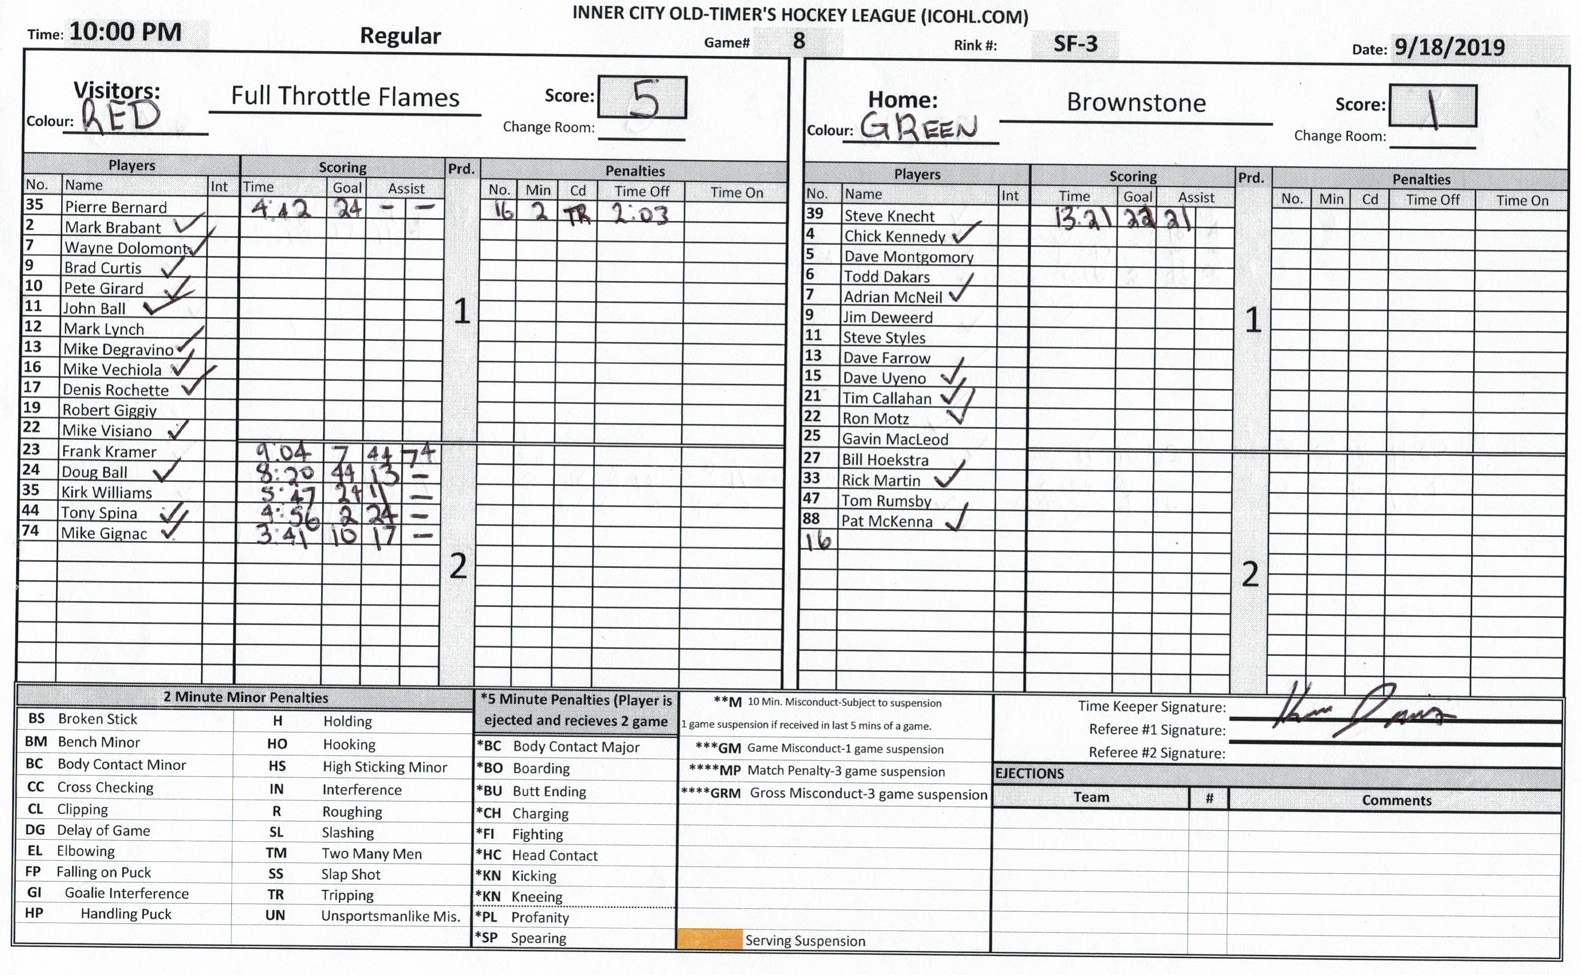 INNER CITY OLD-TIMER'S HOCKEY LEAGUE (ICOHL.COM)
Time: 10:00 PM Regular Game# 8 Rink #: SF-3 Date: 9/18/2019
Visitors: Full Throttle Flames Score: 5
Colour: RED Change Room:
Home: Brownstone Score: 1
Colour: GREEN Change Room:
Players Scoring Prd. Penalties
No. Name Int Time Goal Assist No. Min Cd Time Off Time On
35 Pierre Bernard 4:42 24 - - 16 2 TR 2:03
2 Mark Brabant
7 Wayne Dolomont
9 Brad Curtis
10 Pete Girard
11 John Ball
12 Mark Lynch
13 Mike Degravino
16 Mike Vechiola
17 Denis Rochette
19 Robert Giggiy
22 Mike Visiano
23 Frank Kramer 9:04 7 44 74
24 Doug Ball 8:20 44 13 -
35 Kirk Williams 5:47 24 11 -
44 Tony Spina 4:56 2 24 -
74 Mike Gignac 3:41 10 17 -
1
2
Players Scoring Prd. Penalties
No. Name Int Time Goal Assist No. Min Cd Time Off Time On
39 Steve Knecht 13:21 22 21
4 Chick Kennedy
5 Dave Montgomory
6 Todd Dakars
7 Adrian McNeil
9 Jim Deweerd
11 Steve Styles
13 Dave Farrow
15 Dave Uyeno
21 Tim Callahan
22 Ron Motz
25 Gavin MacLeod
27 Bill Hoekstra
33 Rick Martin
47 Tom Rumsby
88 Pat McKenna
16
1
2
2 Minute Minor Penalties
BS Broken Stick H Holding
BM Bench Minor HO Hooking
BC Body Contact Minor HS High Sticking Minor
CC Cross Checking IN Interference
CL Clipping R Roughing
DG Delay of Game SL Slashing
EL Elbowing TM Two Many Men
FP Falling on Puck SS Slap Shot
GI Goalie Interference TR Tripping
HP Handling Puck UN Unsportsmanlike Mis.
*5 Minute Penalties (Player is
ejected and recieves 2 game
*BC Body Contact Major
*BO Boarding
*BU Butt Ending
*CH Charging
*FI Fighting
*HC Head Contact
*KN Kicking
*KN Kneeing
*PL Profanity
*SP Spearing
**M 10 Min. Misconduct-Subject to suspension
1 game suspension if received in last 5 mins of a game.
***GM Game Misconduct-1 game suspension
****MP Match Penalty-3 game suspension
****GRM Gross Misconduct-3 game suspension
Serving Suspension
Time Keeper Signature:
Referee #1 Signature:
Referee #2 Signature:
EJECTIONS
Team # Comments